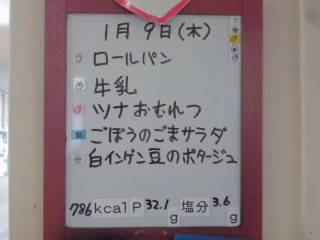 1月 9日(木)
ロールパン
牛乳
ツナおむれつ
ごぼうのごまサラダ
白インゲン豆のポタージュ
786kcal P32.1g 塩分3.6g